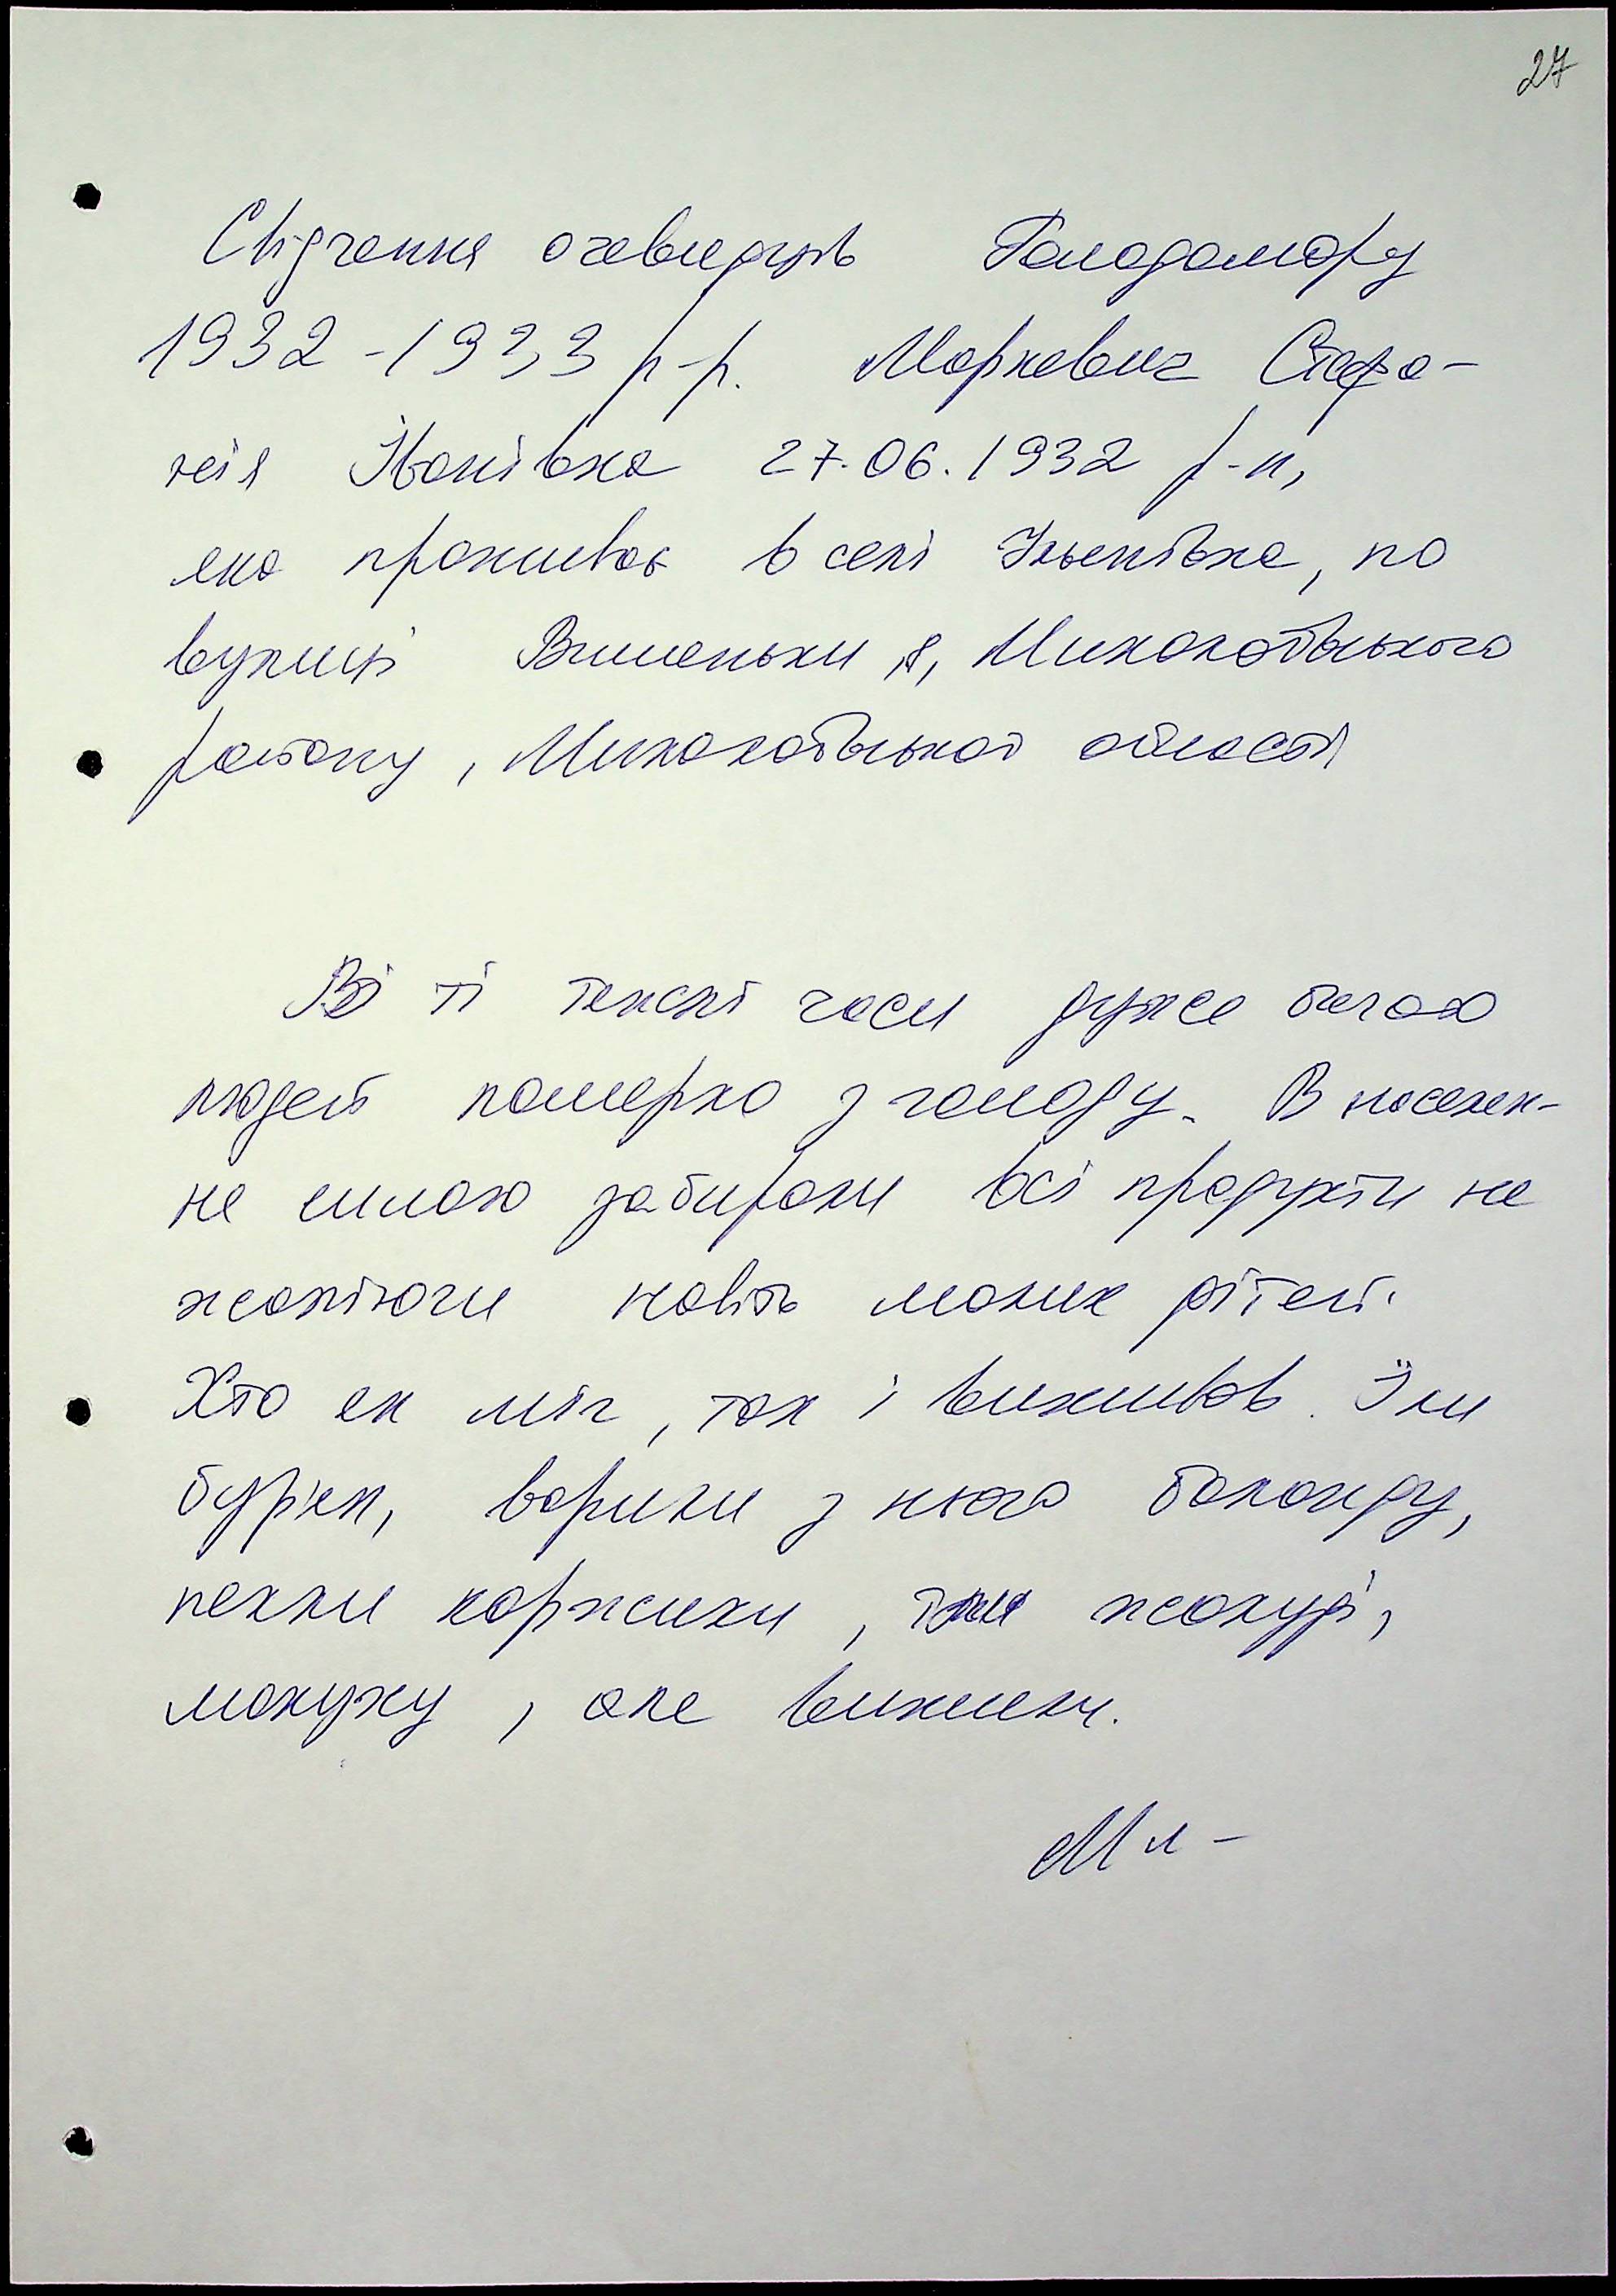 27
Свідчення очевидців Голодомору
1932-1933 р-р. Маркевич Стефа-
нія Іванівна 27.06.1932 р-н,
яка проживає в селі Ульянівка, по
вулиці Вишеньки, 8, Миколаївського
району, Миколаївської області
В ті тяжкі часи дуже багато
людей померло з голоду. В населен-
не силою забирали всі продукти не
жаліючи навіть малих дітей.
Хто як міг, так і виживав. Їли
бур'ян, варили з нього баланду,
пекли коржики, їли жолуді,
макуху, але вижили.